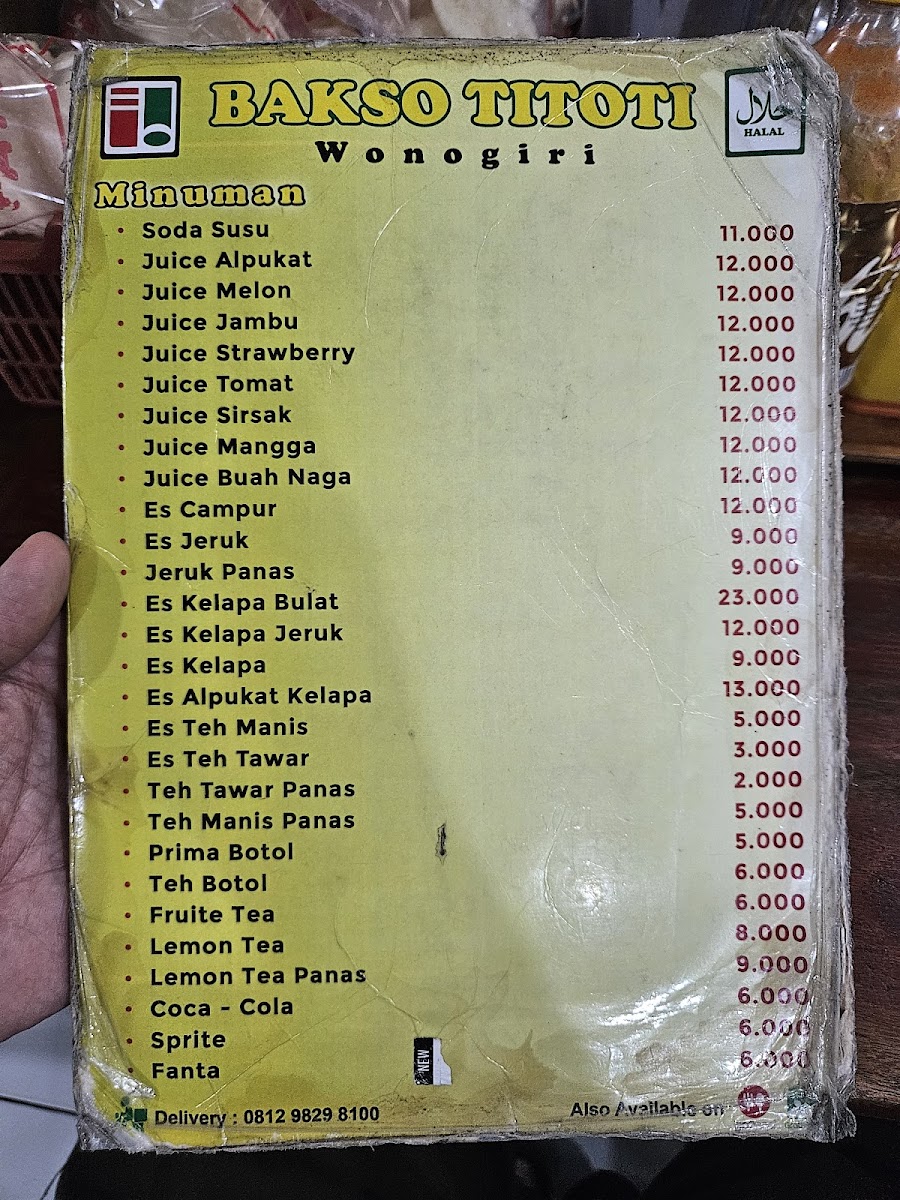 BAKSO TITOTI
حلال
HALAL
Wonogiri
Minuman
• Soda Susu 11.000
• Juice Alpukat 12.000
• Juice Melon 12.000
• Juice Jambu 12.000
• Juice Strawberry 12.000
• Juice Tomat 12.000
• Juice Sirsak 12.000
• Juice Mangga 12.000
• Juice Buah Naga 12.000
• Es Campur 12.000
• Es Jeruk 9.000
• Jeruk Panas 9.000
• Es Kelapa Bulat 23.000
• Es Kelapa Jeruk 12.000
• Es Kelapa 9.000
• Es Alpukat Kelapa 13.000
• Es Teh Manis 5.000
• Es Teh Tawar 3.000
• Teh Tawar Panas 2.000
• Teh Manis Panas 5.000
• Prima Botol 5.000
• Teh Botol 6.000
• Fruite Tea 6.000
• Lemon Tea 8.000
• Lemon Tea Panas 9.000
• Coca - Cola 6.000
• Sprite 6.000
• Fanta 6.000
NEW
Delivery : 0812 9829 8100
Also Available on